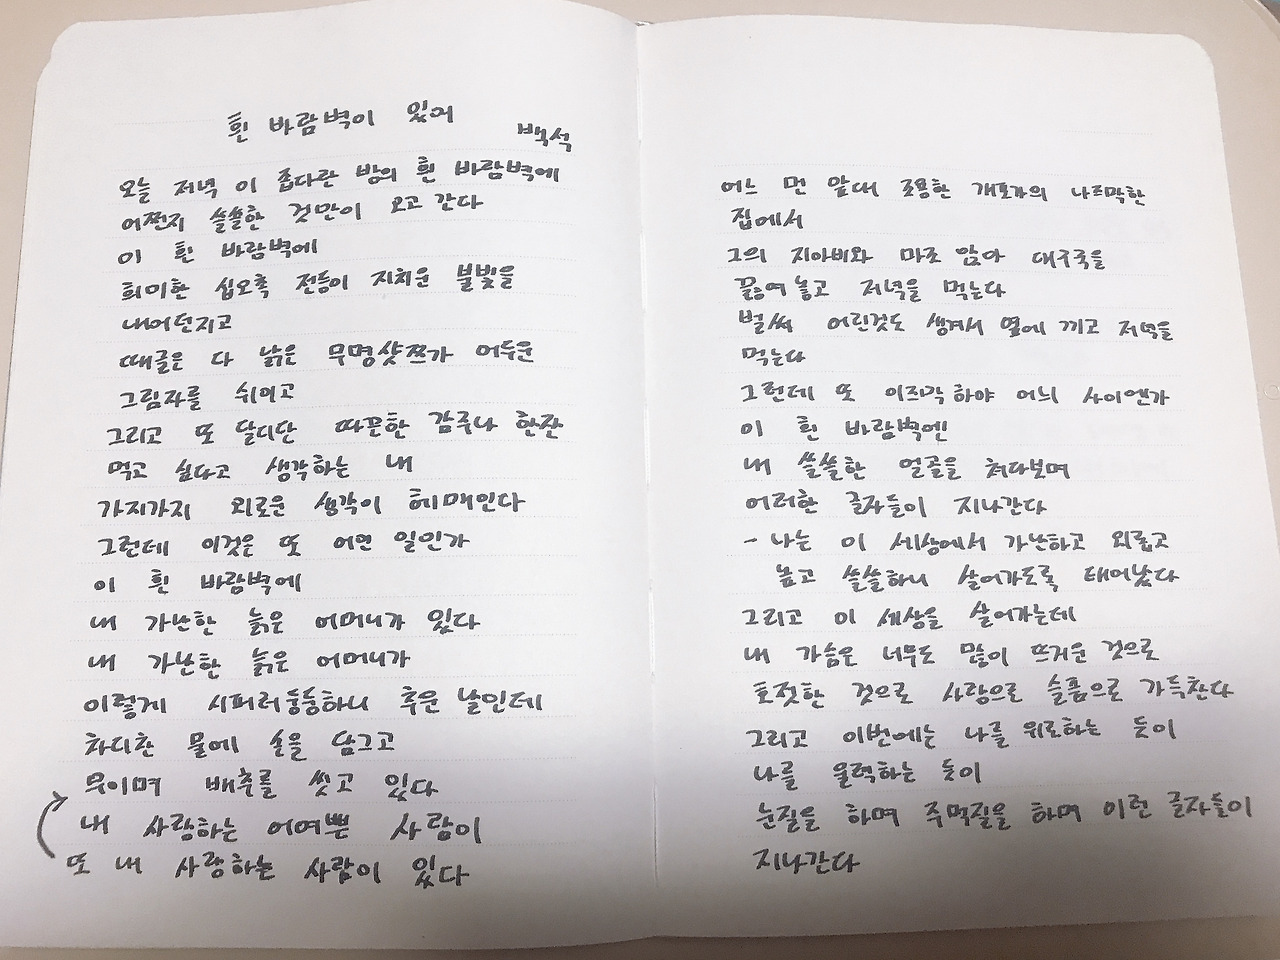 흰 바람벽이 있어
백석
오늘 저녁 이 좁다란 방의 흰 바람벽에
어쩐지 쓸쓸한 것만이 오고 간다
이 흰 바람벽에
희미한 십오촉 전등이 지치운 불빛을
내어던지고
때글은 다 낡은 무명샷쯔가 어두운
그림자를 쉬이고
그리고 또 달디단 따끈한 감주나 한잔
먹고 싶다고 생각하는 내
가지가지 외로운 생각이 헤매인다
그런데 이것은 또 어연 일인가
이 흰 바람벽에
내 가난한 늙은 어머니가 있다
내 가난한 늙은 어머니가
이렇게 시퍼러둥둥하니 추운 날인데
차디찬 물에 손을 담그고
무이며 배추를 씻고 있다
내 사랑하는 어여쁜 사람이
또 내 사랑하는 사람이 있다
어느 먼 앞대 조용한 개포가의 나즈막한
집에서
그의 지아비와 마조 앉아 대구국을
끓여놓고 저녁을 먹는다
벌써 어린것도 생겨서 옆에 끼고 저녁을
먹는다
그런데 또 이즈막하야 어늬 사이엔가
이 흰 바람벽엔
내 쓸쓸한 얼골을 쳐다보며
이러한 글자들이 지나간다
- 나는 이 세상에서 가난하고 외롭고
높고 쓸쓸하니 살어가도록 태어났다
그리고 이 세상을 살어가는데
내 가슴은 너무도 많이 뜨거운 것으로
호젓한 것으로 사랑으로 슬픔으로 가득찬다
그리고 이번에는 나를 위로하는 듯이
나를 울력하는 듯이
눈질을 하며 주먹질을 하며 이런 글자들이
지나간다